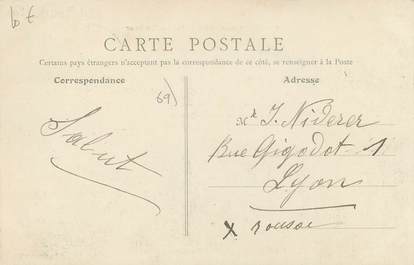 lot
CARTE POSTALE
Certains pays étrangers n'acceptant pas la correspondance de ce côté, se renseigner à la Poste
Correspondance
Adresse
69)
Salut
Mr J. Niderer
Rue Gigodot 1
Lyon
X rousse